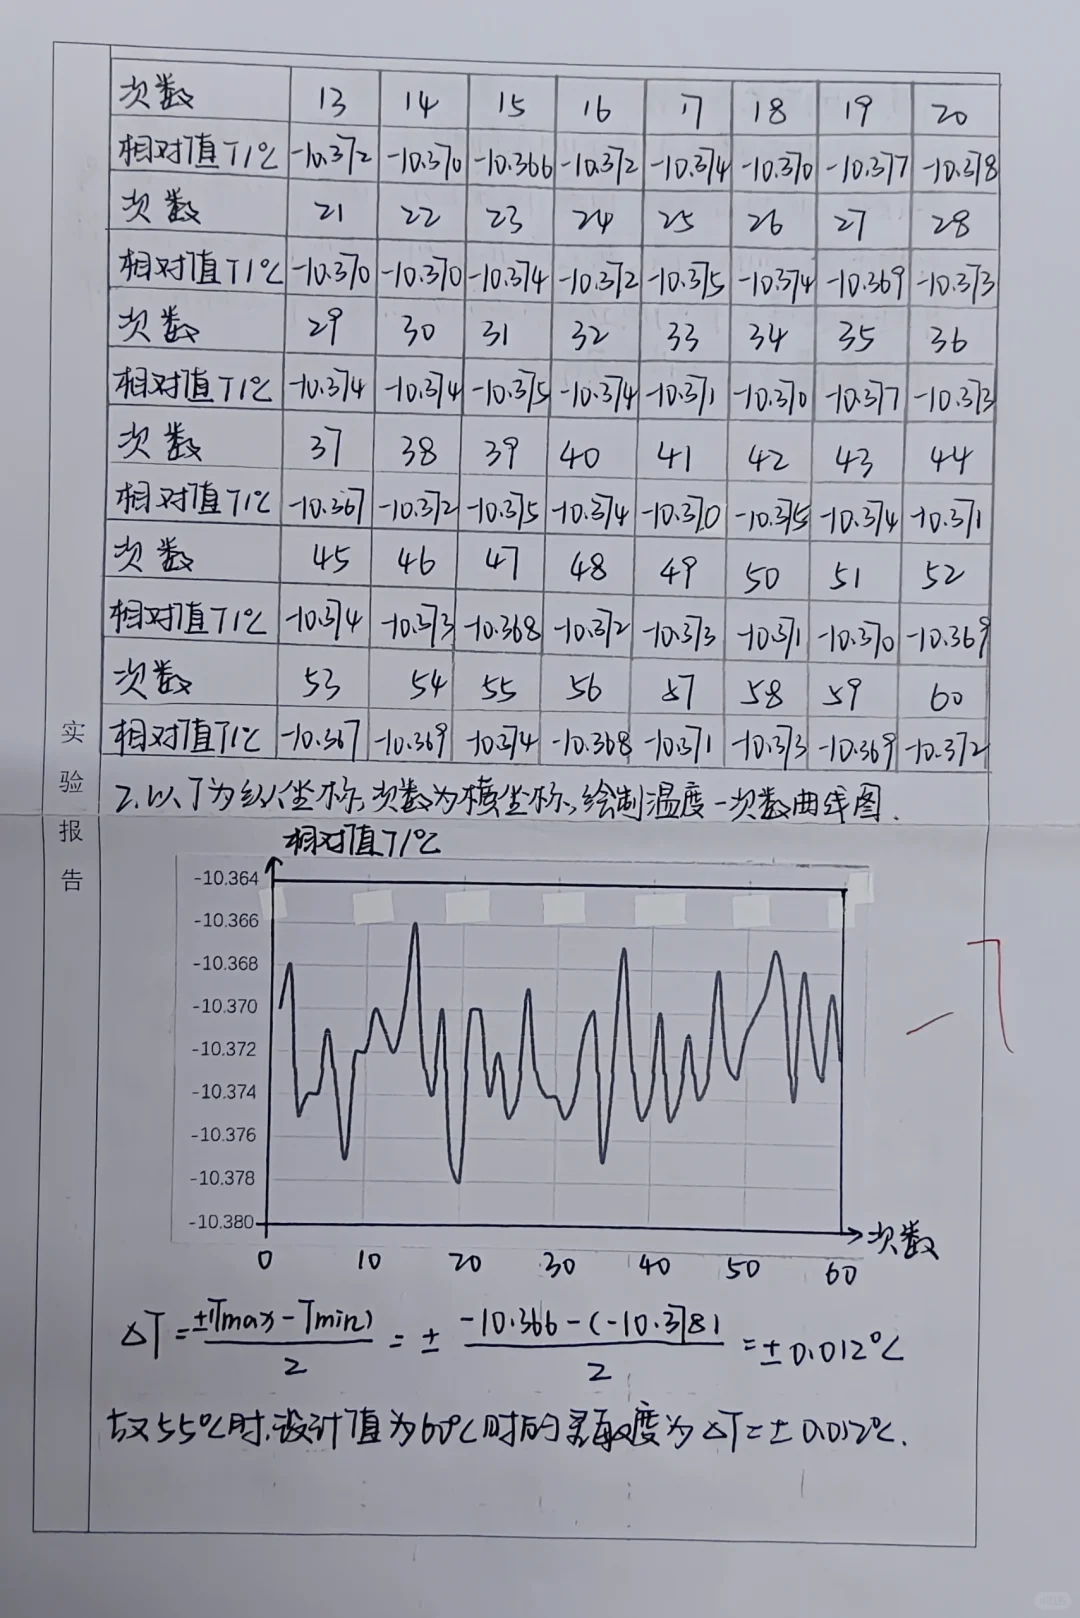 次数 13 14 15 16 17 18 19 20
相对值T/℃ -10.372 -10.370 -10.366 -10.372 -10.374 -10.370 -10.377 -10.378
次数 21 22 23 24 25 26 27 28
相对值T/℃ -10.370 -10.370 -10.374 -10.372 -10.375 -10.374 -10.369 -10.373
次数 29 30 31 32 33 34 35 36
相对值T/℃ -10.374 -10.374 -10.375 -10.374 -10.371 -10.370 -10.377 -10.373
次数 37 38 39 40 41 42 43 44
相对值T/℃ -10.367 -10.372 -10.375 -10.374 -10.370 -10.375 -10.374 -10.371
次数 45 46 47 48 49 50 51 52
相对值T/℃ -10.374 -10.373 -10.368 -10.372 -10.373 -10.371 -10.370 -10.369
次数 53 54 55 56 57 58 59 60
相对值T/℃ -10.367 -10.369 -10.374 -10.368 -10.371 -10.373 -10.369 -10.372
实验报告
2.以T为纵坐标,次数为横坐标,绘制温度-次数曲线图.
相对值T/℃
-10.364
-10.366
-10.368
-10.370
-10.372
-10.374
-10.376
-10.378
-10.380
次数
0 10 20 30 40 50 60
ΔT = ±(Tmax - Tmin)/2 = ± -10.366-(-10.378)/2 = ±0.012℃
故55℃时,设计值为60℃时的灵敏度为ΔT=±0.012℃.